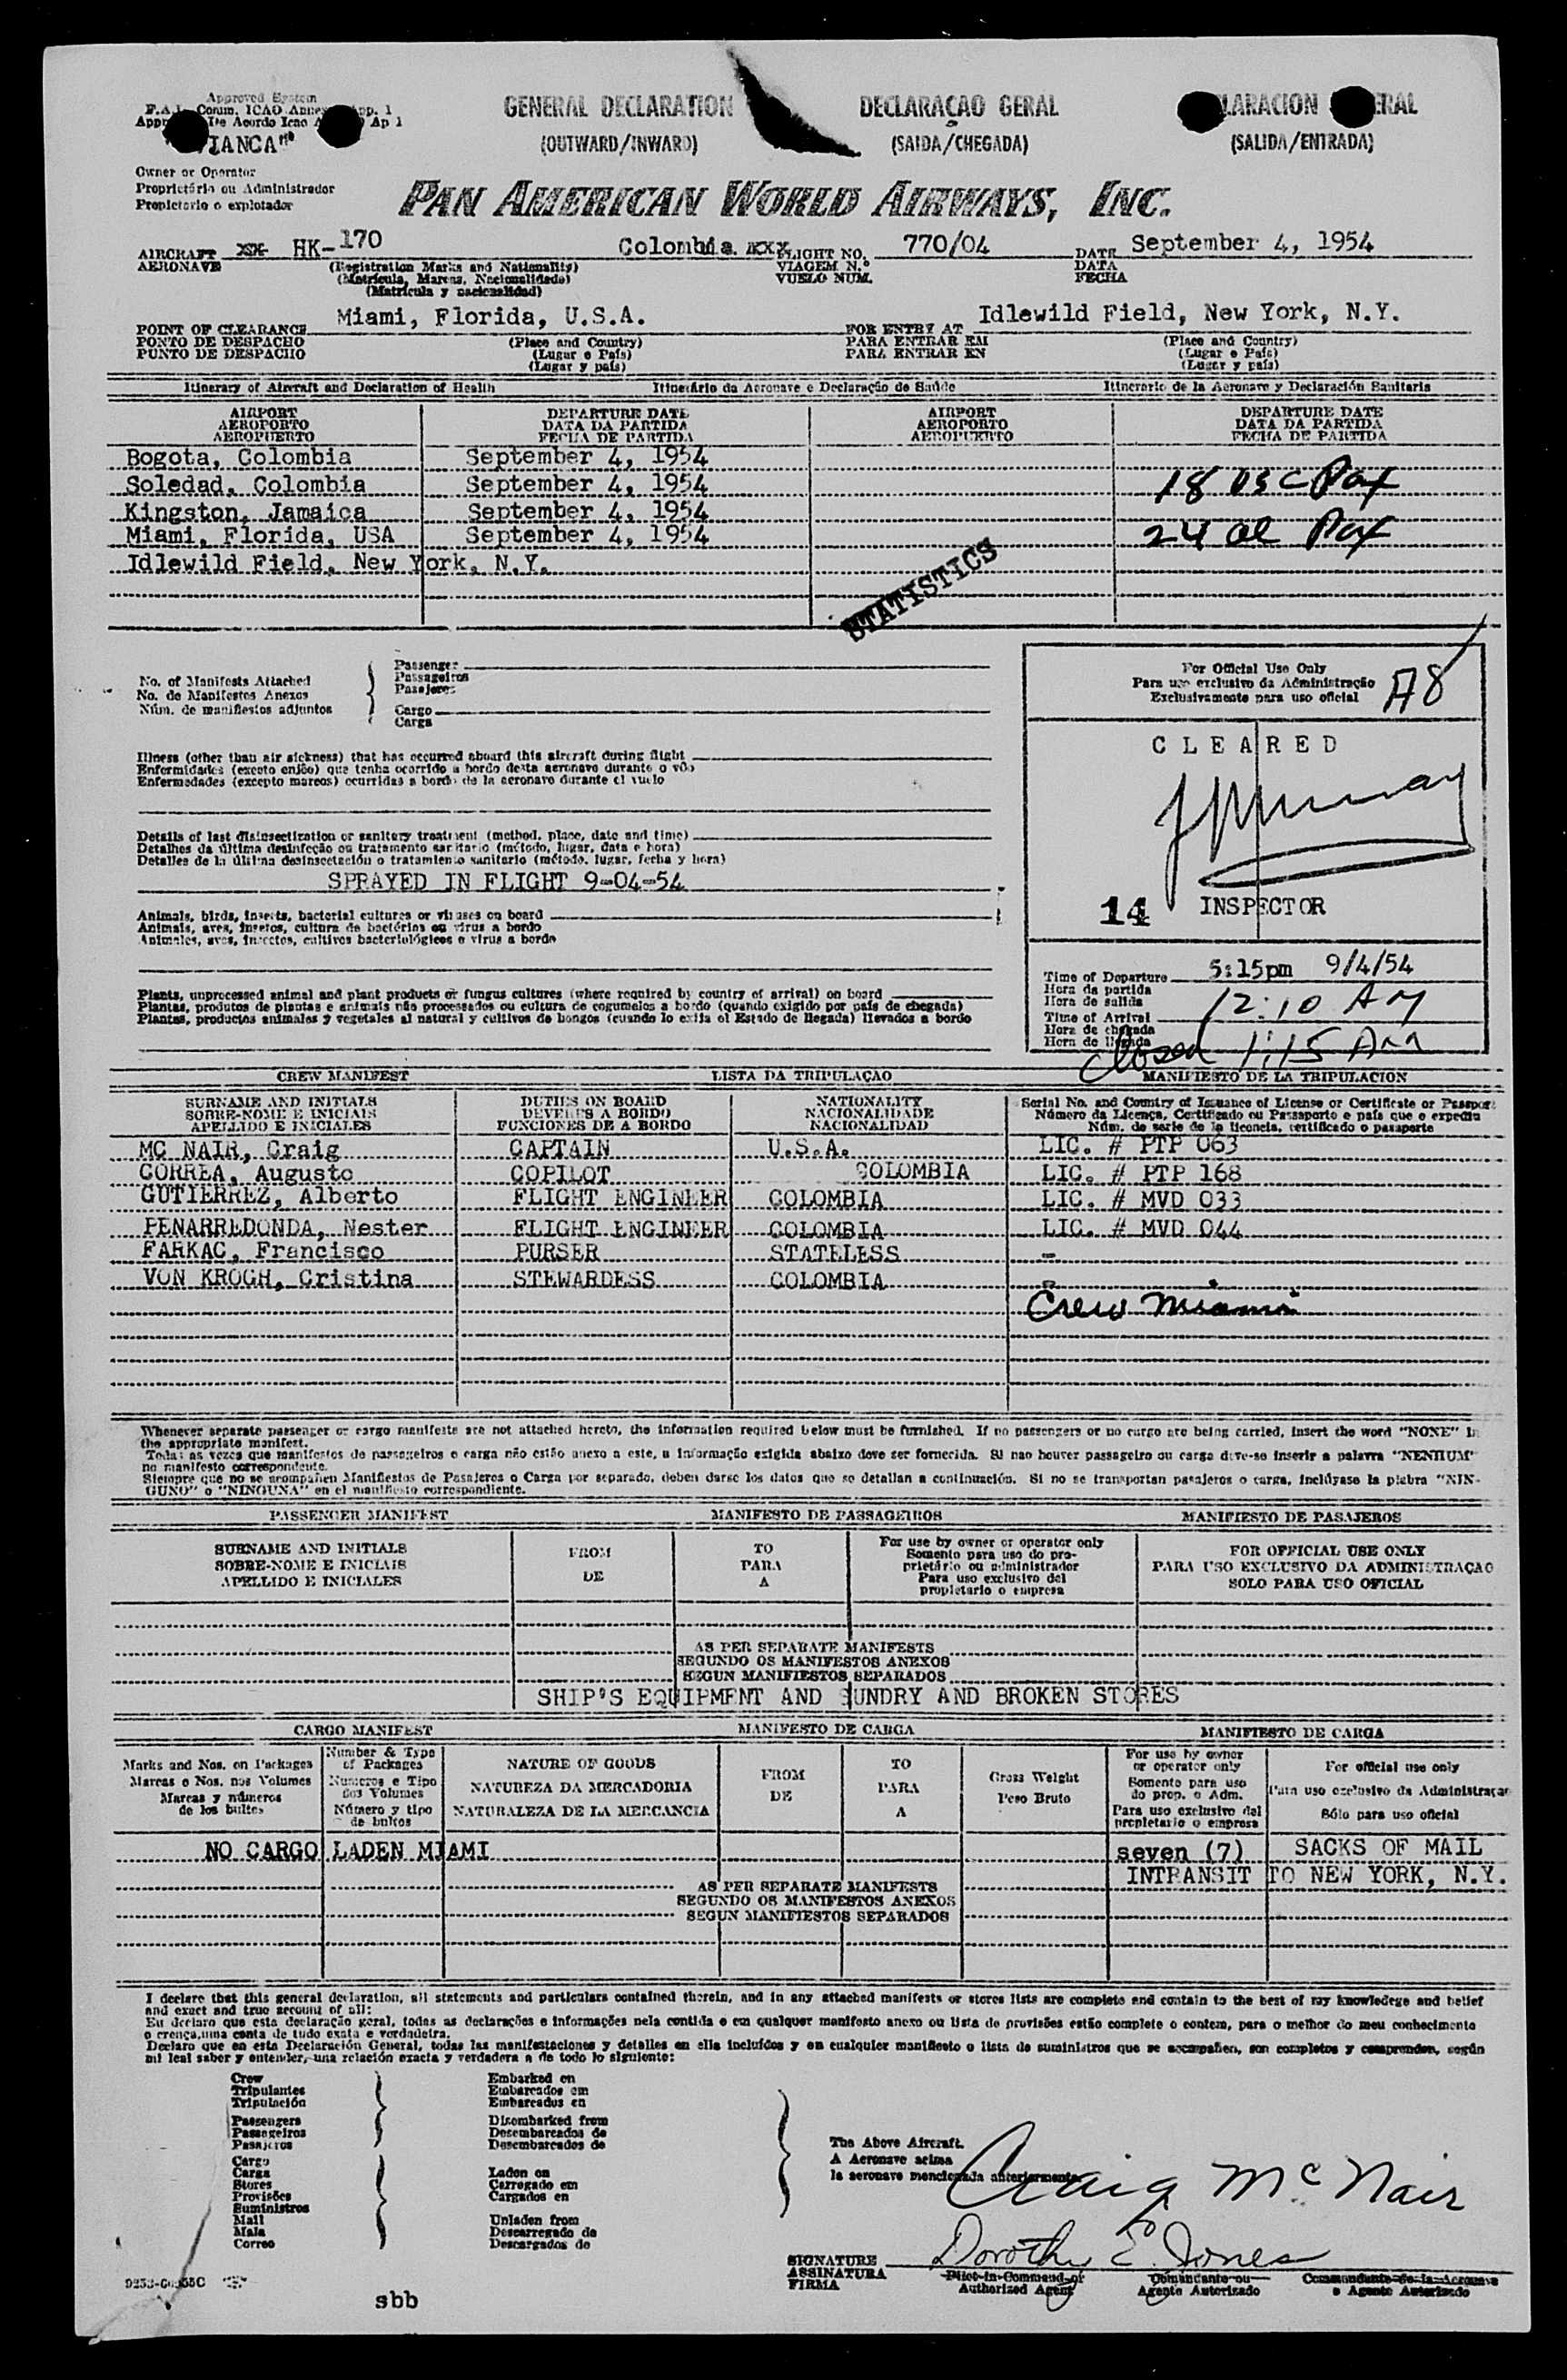 Approved System
F.A.L. Comm. ICAO Annex App. 1
Ap 1
IANCA
GENERAL DECLARATION
(OUTWARD/INWARD)
DECLARAÇAO GERAL
(SAIDA/CHEGADA)
LARACION ERAL
(SALIDA/ENTRADA)
Owner or Operator
Proprietário ou Administrador
Propietario o explotador
PAN AMERICAN WORLD AIRWAYS, INC.
AIRCRAFT xx- HK-170 Colombia xxx FLIGHT NO. 770/04 DATE September 4, 1954
AERONAVE (Registration Marks and Nationality) VIAGEM N.º DATA
(Matrícula, Marcas, Nacionalidade) VUELO NUM. FECHA
(Matrícula y nacionalidad)
POINT OF CLEARANCE Miami, Florida, U.S.A. FOR ENTRY AT Idlewild Field, New York, N.Y.
PONTO DE DESPACHO (Place and Country) PARA ENTRAR EM (Place and Country)
PUNTO DE DESPACHO (Lugar e País) PARA ENTRAR EN (Lugar e País)
(Lugar y país) (Lugar y país)
Itinerary of Aircraft and Declaration of Health Itinerário da Aeronave e Declaração de Saúde Itinerario de la Aeronave y Declaración Sanitaria
AIRPORT DEPARTURE DATE AIRPORT DEPARTURE DATE
AEROPORTO DATA DA PARTIDA AEROPORTO DATA DA PARTIDA
AEROPUERTO FECHA DE PARTIDA AEROPUERTO FECHA DE PARTIDA
Bogota, Colombia September 4, 1954
Soledad, Colombia September 4, 1954 18 usc Pax
Kingston, Jamaica September 4, 1954
Miami, Florida, USA September 4, 1954 24 al Pax
Idlewild Field, New York, N.Y.
STATISTICS
No. of Manifests Attached
No. de Manifestos Anexos
Núm. de manifiestos adjuntos
Passenger
Passageiros
Pasajeros
Cargo
Carga
For Official Use Only
Para uso exclusivo da Administração
Exclusivamente para uso oficial
A8
CLEARED
14 INSPECTOR
Illness (other than air sickness) that has occurred aboard this aircraft during flight
Enfermidades (exceto enjôo) que tenha ocorrido a bordo desta aeronave durante o vôo
Enfermedades (excepto mareos) ocurridas a bordo de la aeronave durante el vuelo
Details of last disinsectization or sanitary treatment (method, place, date and time)
Detalhes da última desinfeção ou tratamento sanitario (método, lugar, data e hora)
Detalles de la última desinsectación o tratamiento sanitario (método, lugar, fecha y hora)
SPRAYED IN FLIGHT 9-04-54
Animals, birds, insects, bacterial cultures or viruses on board
Animais, aves, insetos, cultura de bactérias ou virus a bordo
Animales, aves, insectos, cultivos bacteriológicos o virus a bordo
Plants, unprocessed animal and plant products or fungus cultures (where required by country of arrival) on board
Plantas, produtos de plantas e animais não processados ou cultura de cogumelos a bordo (quando exigido por país de chegada)
Plantas, productos animales y vegetales al natural y cultivos de hongos (cuando lo exija el Estado de llegada) llevados a bordo
Time of Departure 5:15pm 9/4/54
Hora da partida
Hora de salida
Time of Arrival 12:10 AM
Hora de chegada
Hora de llegada
Closed 1:15 AM
CREW MANIFEST LISTA DA TRIPULAÇAO MANIFIESTO DE LA TRIPULACION
SURNAME AND INITIALS DUTIES ON BOARD NATIONALITY Serial No. and Country of Issuance of License or Certificate or Passport
SOBRE-NOME E INICIAIS DEVERES A BORDO NACIONALIDADE Número da Licença, Certificado ou Passaporte e país que o expediu
APELLIDO E INICIALES FUNCIONES DE A BORDO NACIONALIDAD Núm. de serie de la licencia, certificado o pasaporte
MC NAIR, Craig CAPTAIN U.S.A. LIC. # PTP 063
CORREA, Augusto COPILOT COLOMBIA LIC. # PTP 168
GUTIERREZ, Alberto FLIGHT ENGINEER COLOMBIA LIC. # MVD 033
PENARREDONDA, Nester FLIGHT ENGINEER COLOMBIA LIC. # MVD 044
FARKAC, Francisco PURSER STATELESS -
VON KROGH, Cristina STEWARDESS COLOMBIA -
Crew Miami
Whenever separate passenger or cargo manifests are not attached hereto, the information required below must be furnished. If no passengers or no cargo are being carried, insert the word "NONE" in
the appropriate manifest.
Todas as vezes que manifestos de passageiros e carga não estão anexo a este, a informação exigida abaixo deve ser fornecida. Si nao houver passageiro ou carga deve-se inserir a palavra "NENHUM"
no manifesto correspondente.
Siempre que no se acompañen Manifiestos de Pasajeros o Carga por separado, deben darse los datos que se detallan a continuación. Si no se transportan pasajeros o carga, inclúyase la plabra "NIN-
GUNO" o "NINGUNA" en el manifiesto correspondiente.
PASSENGER MANIFEST MANIFESTO DE PASSAGEIROS MANIFIESTO DE PASAJEROS
SURNAME AND INITIALS
SOBRE-NOME E INICIAIS
APELLIDO E INICIALES
FROM
DE
TO
PARA
A
For use by owner or operator only
Somente para uso do pro-
prietário ou administrador
Para uso exclusivo del
propietario o empresa
FOR OFFICIAL USE ONLY
PARA USO EXCLUSIVO DA ADMINISTRAÇAO
SOLO PARA USO OFICIAL
AS PER SEPARATE MANIFESTS
SEGUNDO OS MANIFESTOS ANEXOS
SEGUN MANIFIESTOS SEPARADOS
SHIP'S EQUIPMENT AND SUNDRY AND BROKEN STORES
CARGO MANIFEST MANIFESTO DE CARGA MANIFIESTO DE CARGA
Marks and Nos. on Packages
Marcas e Nos. nos Volumes
Marcas y números
de los bultos
Number & Type
of Packages
Numeros e Tipo
dos Volumes
Número y tipo
de bultos
NATURE OF GOODS
NATUREZA DA MERCADORIA
NATURALEZA DE LA MERCANCIA
FROM
DE
TO
PARA
A
Gross Weight
Peso Bruto
For use by owner
or operator only
Somente para uso
do prop. o Adm.
Para uso exclusivo del
propietario o empresa
For official use only
Para uso exclusivo da Administraçao
Sólo para uso oficial
NO CARGO LADEN MIAMI seven (7) SACKS OF MAIL
INTRANSIT TO NEW YORK, N.Y.
AS PER SEPARATE MANIFESTS
SEGUNDO OS MANIFESTOS ANEXOS
SEGUN MANIFIESTOS SEPARADOS
I declare that this general declaration, all statements and particulars contained therein, and in any attached manifests or stores lists are complete and contain to the best of my knowledege and belief
and exact and true account of all:
Eu declaro que esta declaração geral, todas as declarações e informações nela contida e em qualquer manifesto anexo ou lista de provisões estão complete o contem, para o melhor do meu conhecimento
e crença, uma conta de tudo exata e verdadeira.
Declaro que en esta Declaración General, todas las manifestaciones y detalles en ella incluídos y en cualquier manifiesto o lista de suministros que se acompañen, son completos y comprenden, según
mi leal saber y entender, una relación exacta y verdadera a de todo lo siguiente:
Crew
Tripulantes
Tripulación
Passengers
Passageiros
Pasajeros
Cargo
Carga
Stores
Provisões
Suministros
Mail
Mala
Correo
Embarked on
Embarcados em
Embarcados en
Disembarked from
Desembarcados de
Desembarcados de
Laden on
Carregado em
Cargados en
Unladen from
Descarregado de
Descargados de
The Above Aircraft.
A Aeronave acima
la aeronave mencionada anteriormente
Craig McNair
Dorothy E. Jones
SIGNATURE
ASSINATURA
FIRMA
Pilot-in-Command or
Authorized Agent
Comandante ou
Agente Autorizado
Commandante de la Aeronave
o Agente Autorizado
sbb